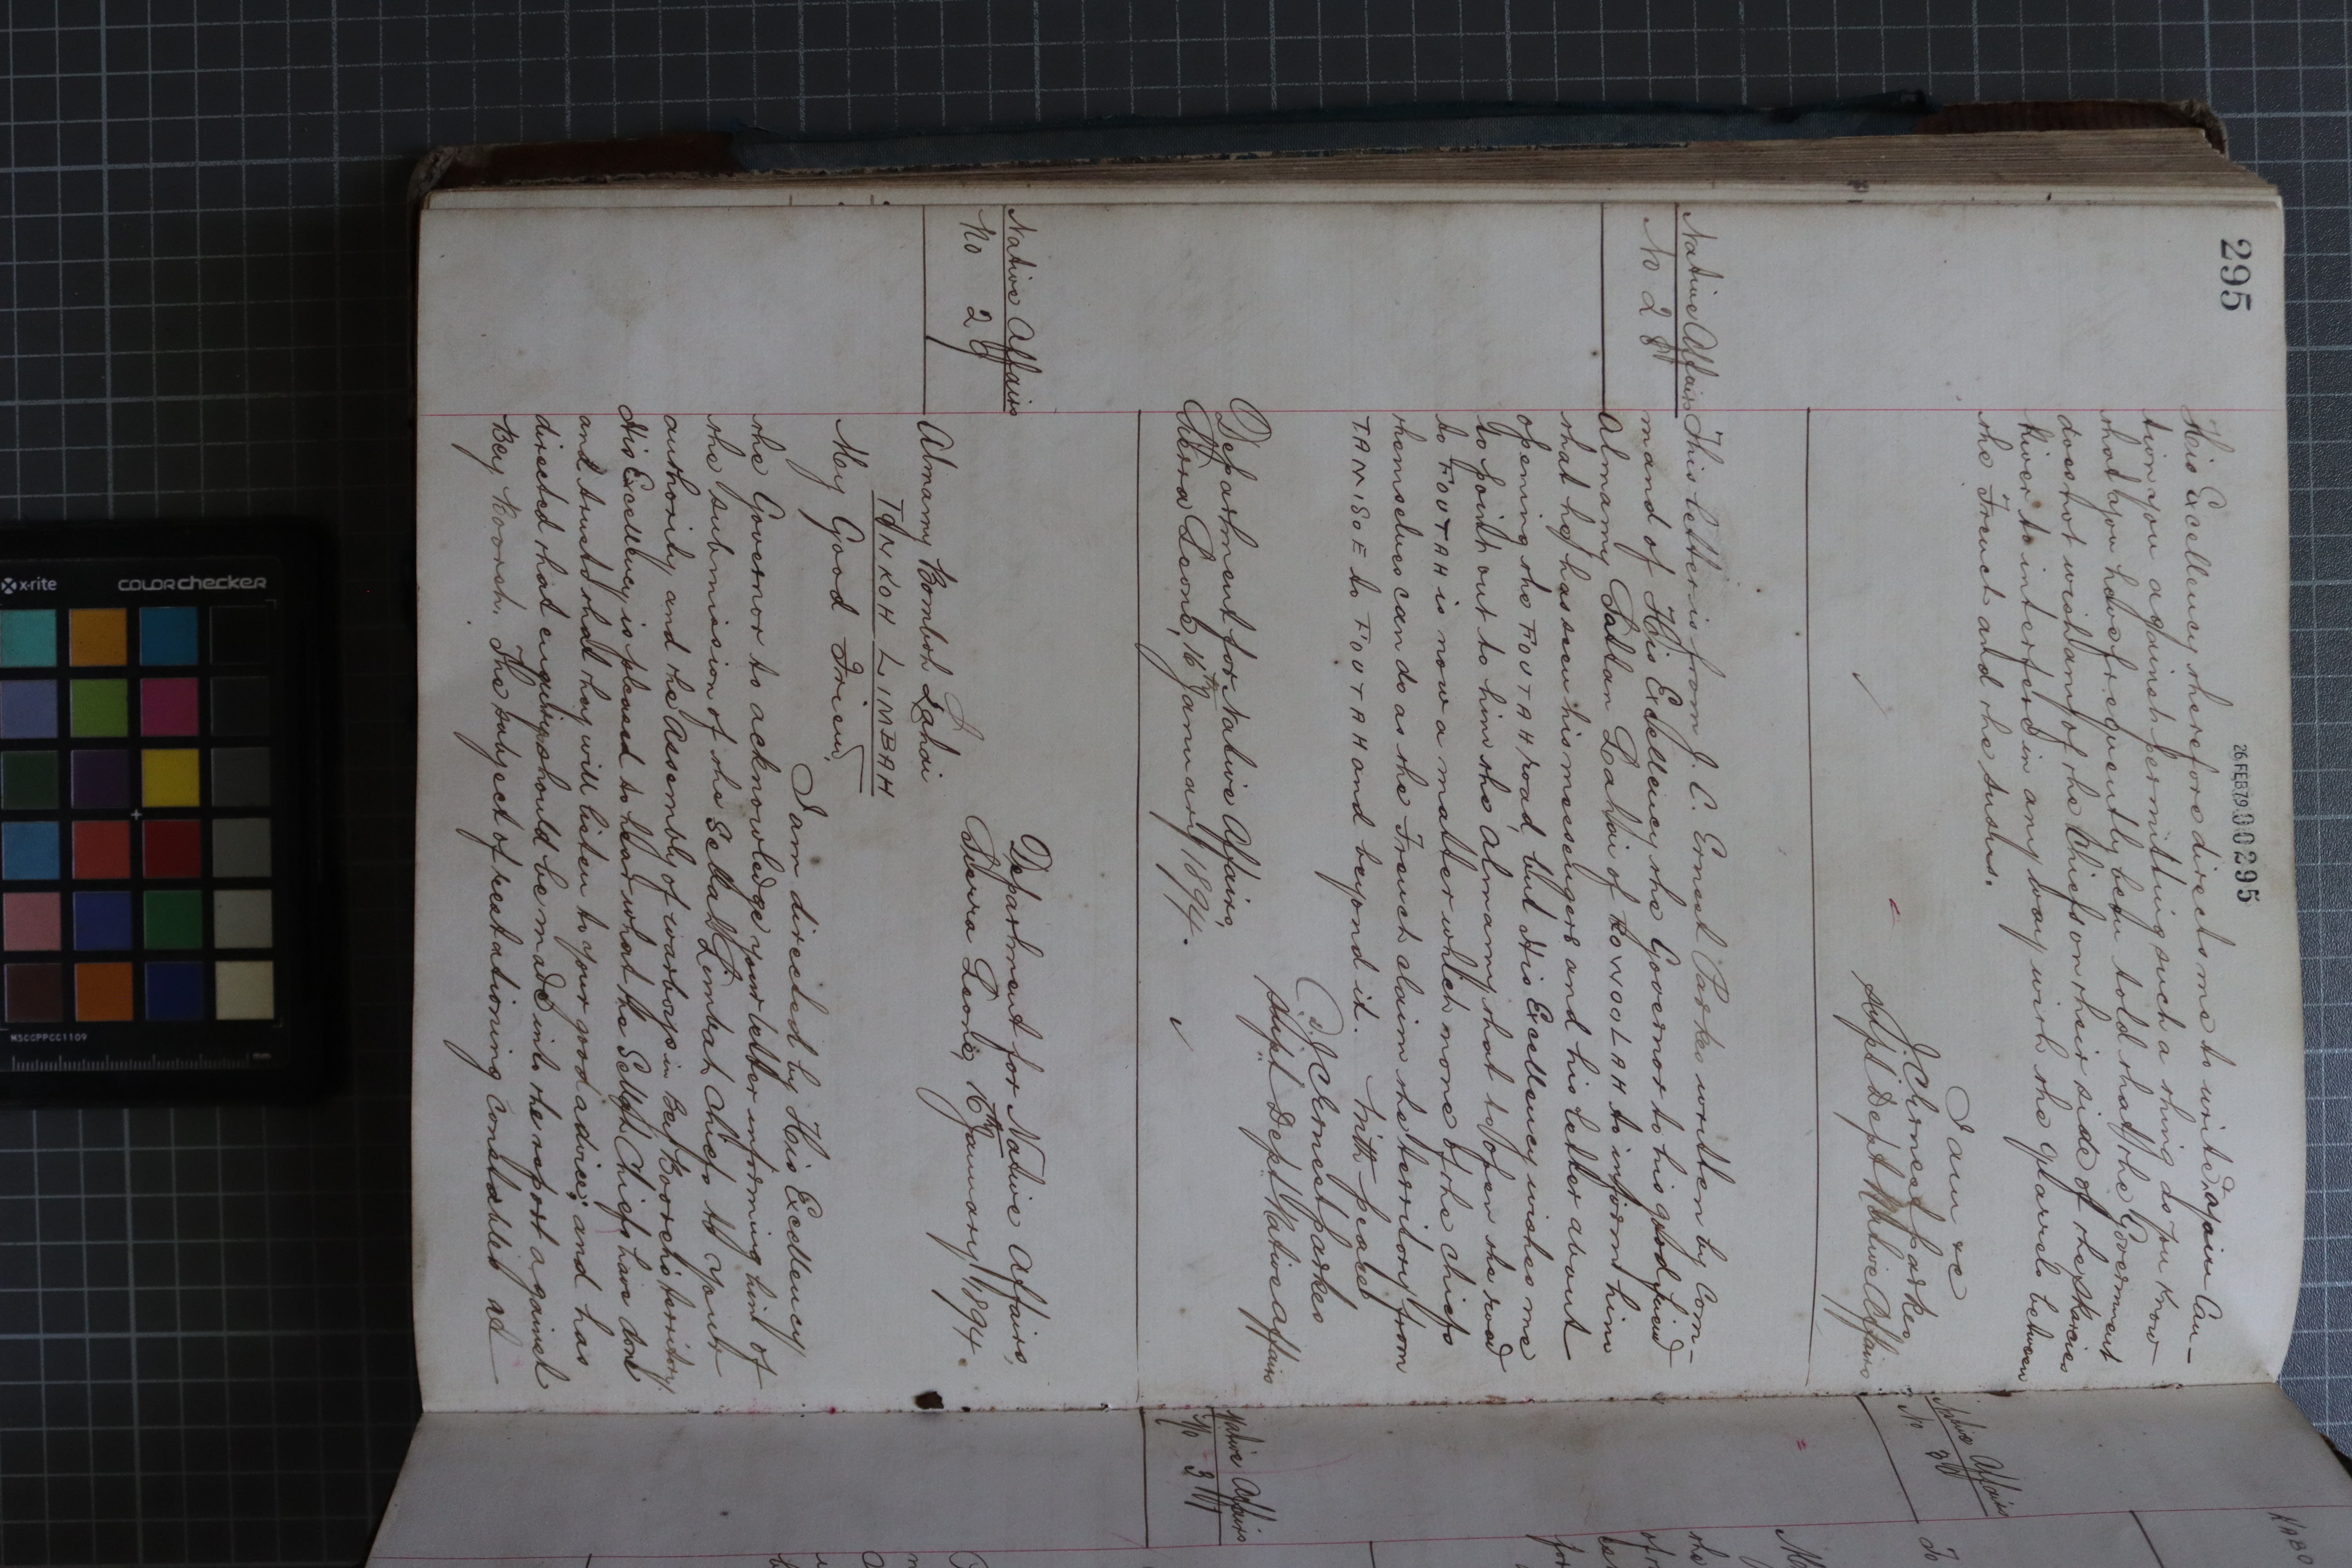 295
26 FEB 79 000295
His Excellency therefore directs me to write & again Cau-
tion you against permitting such a thing as you know
that you have frequently been told that the Government
does not wish any of the Chiefs on their side of the Skarcies
River to interfere in any way with the quarrels between
the French and the Susus.
I am &c
J C Ernest Parkes
Supt Dept Native Affairs
Native Affairs
No 28
This letter is from J. C. Ernest Parkes written by Com-
mand of His Excellency the Governor to his good friend
Almamy Sattan Lahai of to inform him
that he has seen his messengers and his letter about
opening the FOUTAH road, but His Excellency wishes me
to point out to him the Almamy that to open the road
to FOUTAH is now a matter which none of the Chiefs
themselves can do as the French claim the territory from
TAMISOE to FOUTAH and beyond it. With peace
J C Ernest Parkes
Supt Dept Native Affairs
Department for Native Affairs,
Sierra Leone, 16th January 1894.
Native Affairs
No 29
Department for Native Affairs,
Sierra Leone, 16th January 1894.
Almamy Bomboh Lahai
TONKOH LIMBAH
My Good Friend,
I am directed by His Excellency
the Governor to acknowledge your letter informing him of
the submission of the Sellah Limbah Chiefs to your
authority and the assembly of warboys in Bey Booreh's territory.
His Excellency is pleased to hear what the Sellah Chiefs have done
and trust that they will listen to your good advice; and has
directed that enquiry should be made into the report against
Bey Booreh. The subject of restationing constables at
Native Affairs
No 3
Native Affairs
No 3
To